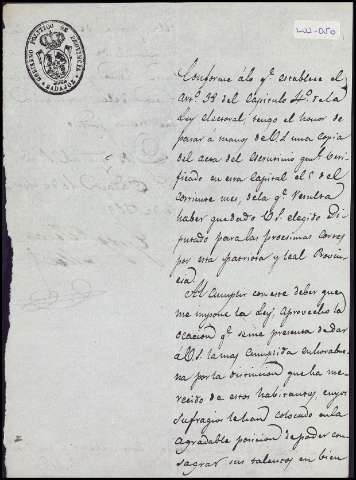 GOBIERNO POLITICO DE PROVINCIA
BADAJOZ
Conforme á lo q.e establece el
Art.o 38 del Capitulo 4.o de la
Ley electoral, tengo el honor de
pasar a manos de V.S. una copia
del acta del escrutinio veri-
ficado en esta Capital el 5 del
corriente mes, de la q.e resulta
haber quedado V.S. elegido Di-
putado para las procsimas Cortes
por esta Patriota y leal Provin-
cia.
Al cumplir con este deber que
me impone la Ley, aprovecho la
ocacion q.e se me presenta de dar
á V.S. la mas cumplida enhorabue-
na por la distincion que ha me-
recido de estos habitantes, cuyos
sufragios le han colocado en la
agradable posicion de poder con-
sagrar sus talentos en bien